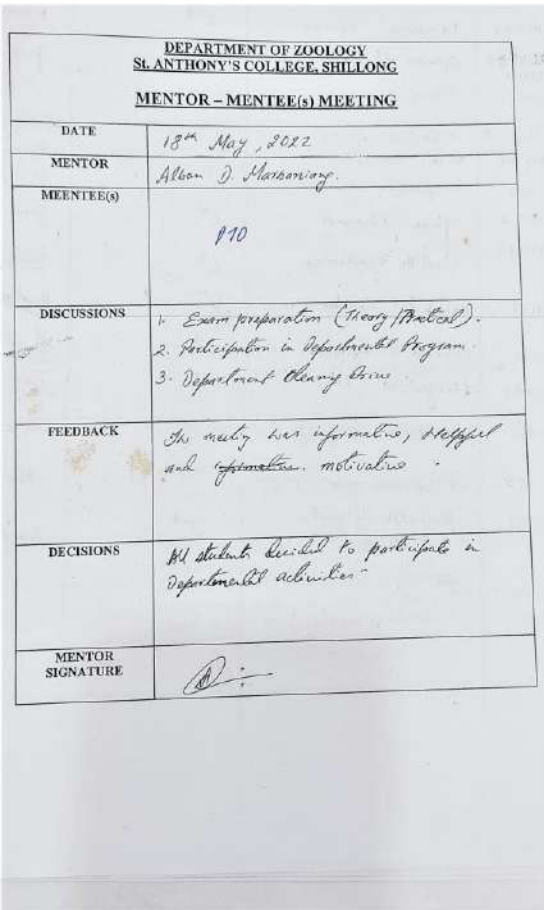 DEPARTMENT OF ZOOLOGY
St. ANTHONY'S COLLEGE, SHILLONG
MENTOR – MENTEE(s) MEETING
DATE 18th May, 2022
MENTOR Alban D. Marbaniang.
MEENTEE(s)
PTO
DISCUSSIONS 1. Exam preparation (Theory/Practical).
2. Participation in Departmental Program.
3. Department Cleaning Drive
FEEDBACK The meeting was informative, Helpful
and informative. motivative.
DECISIONS All students decided to participate in
Departmental activities
MENTOR
SIGNATURE